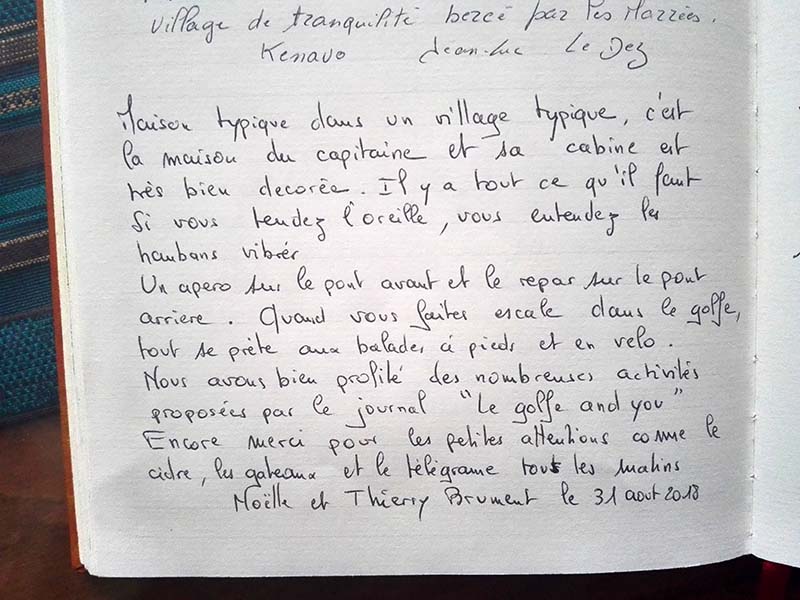 village de tranquilité bercé par les Marrées.
Kenavo Jean-Luc Le Dez
Maison typique dans un village typique, c'est
la maison du capitaine et sa cabine est
très bien decorée. Il y a tout ce qu'il faut
Si vous tendez l'oreille, vous entendez les
haubans vibrér
Un apero sur le pont avant et le repas sur le pont
arriere. Quand vous faites escale dans le golfe,
tout se prète aux balades à pieds et en velo.
Nous avons bien profité des nombreuses activités
proposées par le journal "Le golfe and you"
Encore merci pour les petites attentions comme le
cidre, les gateaux et le télégrame tous les matins
Noëlle et Thierry Brument le 31 aout 2018